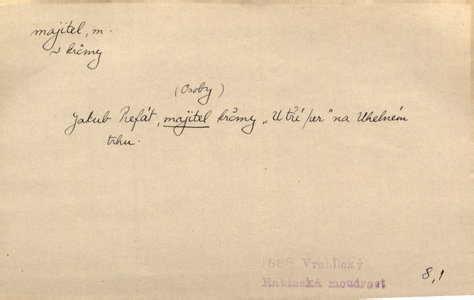 majitel, m.
~ krčmy
(Osoby)
Jakub Prefát, majitel krčmy „U tří per" na Uhelném
trhu.
1886 Vrchlický
Rabínská moudrost
8,1